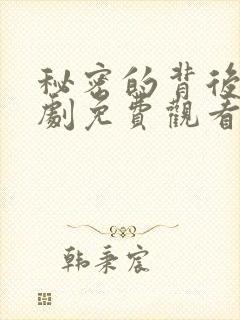 秘密的背後
劇免費觀看
韩秉宸